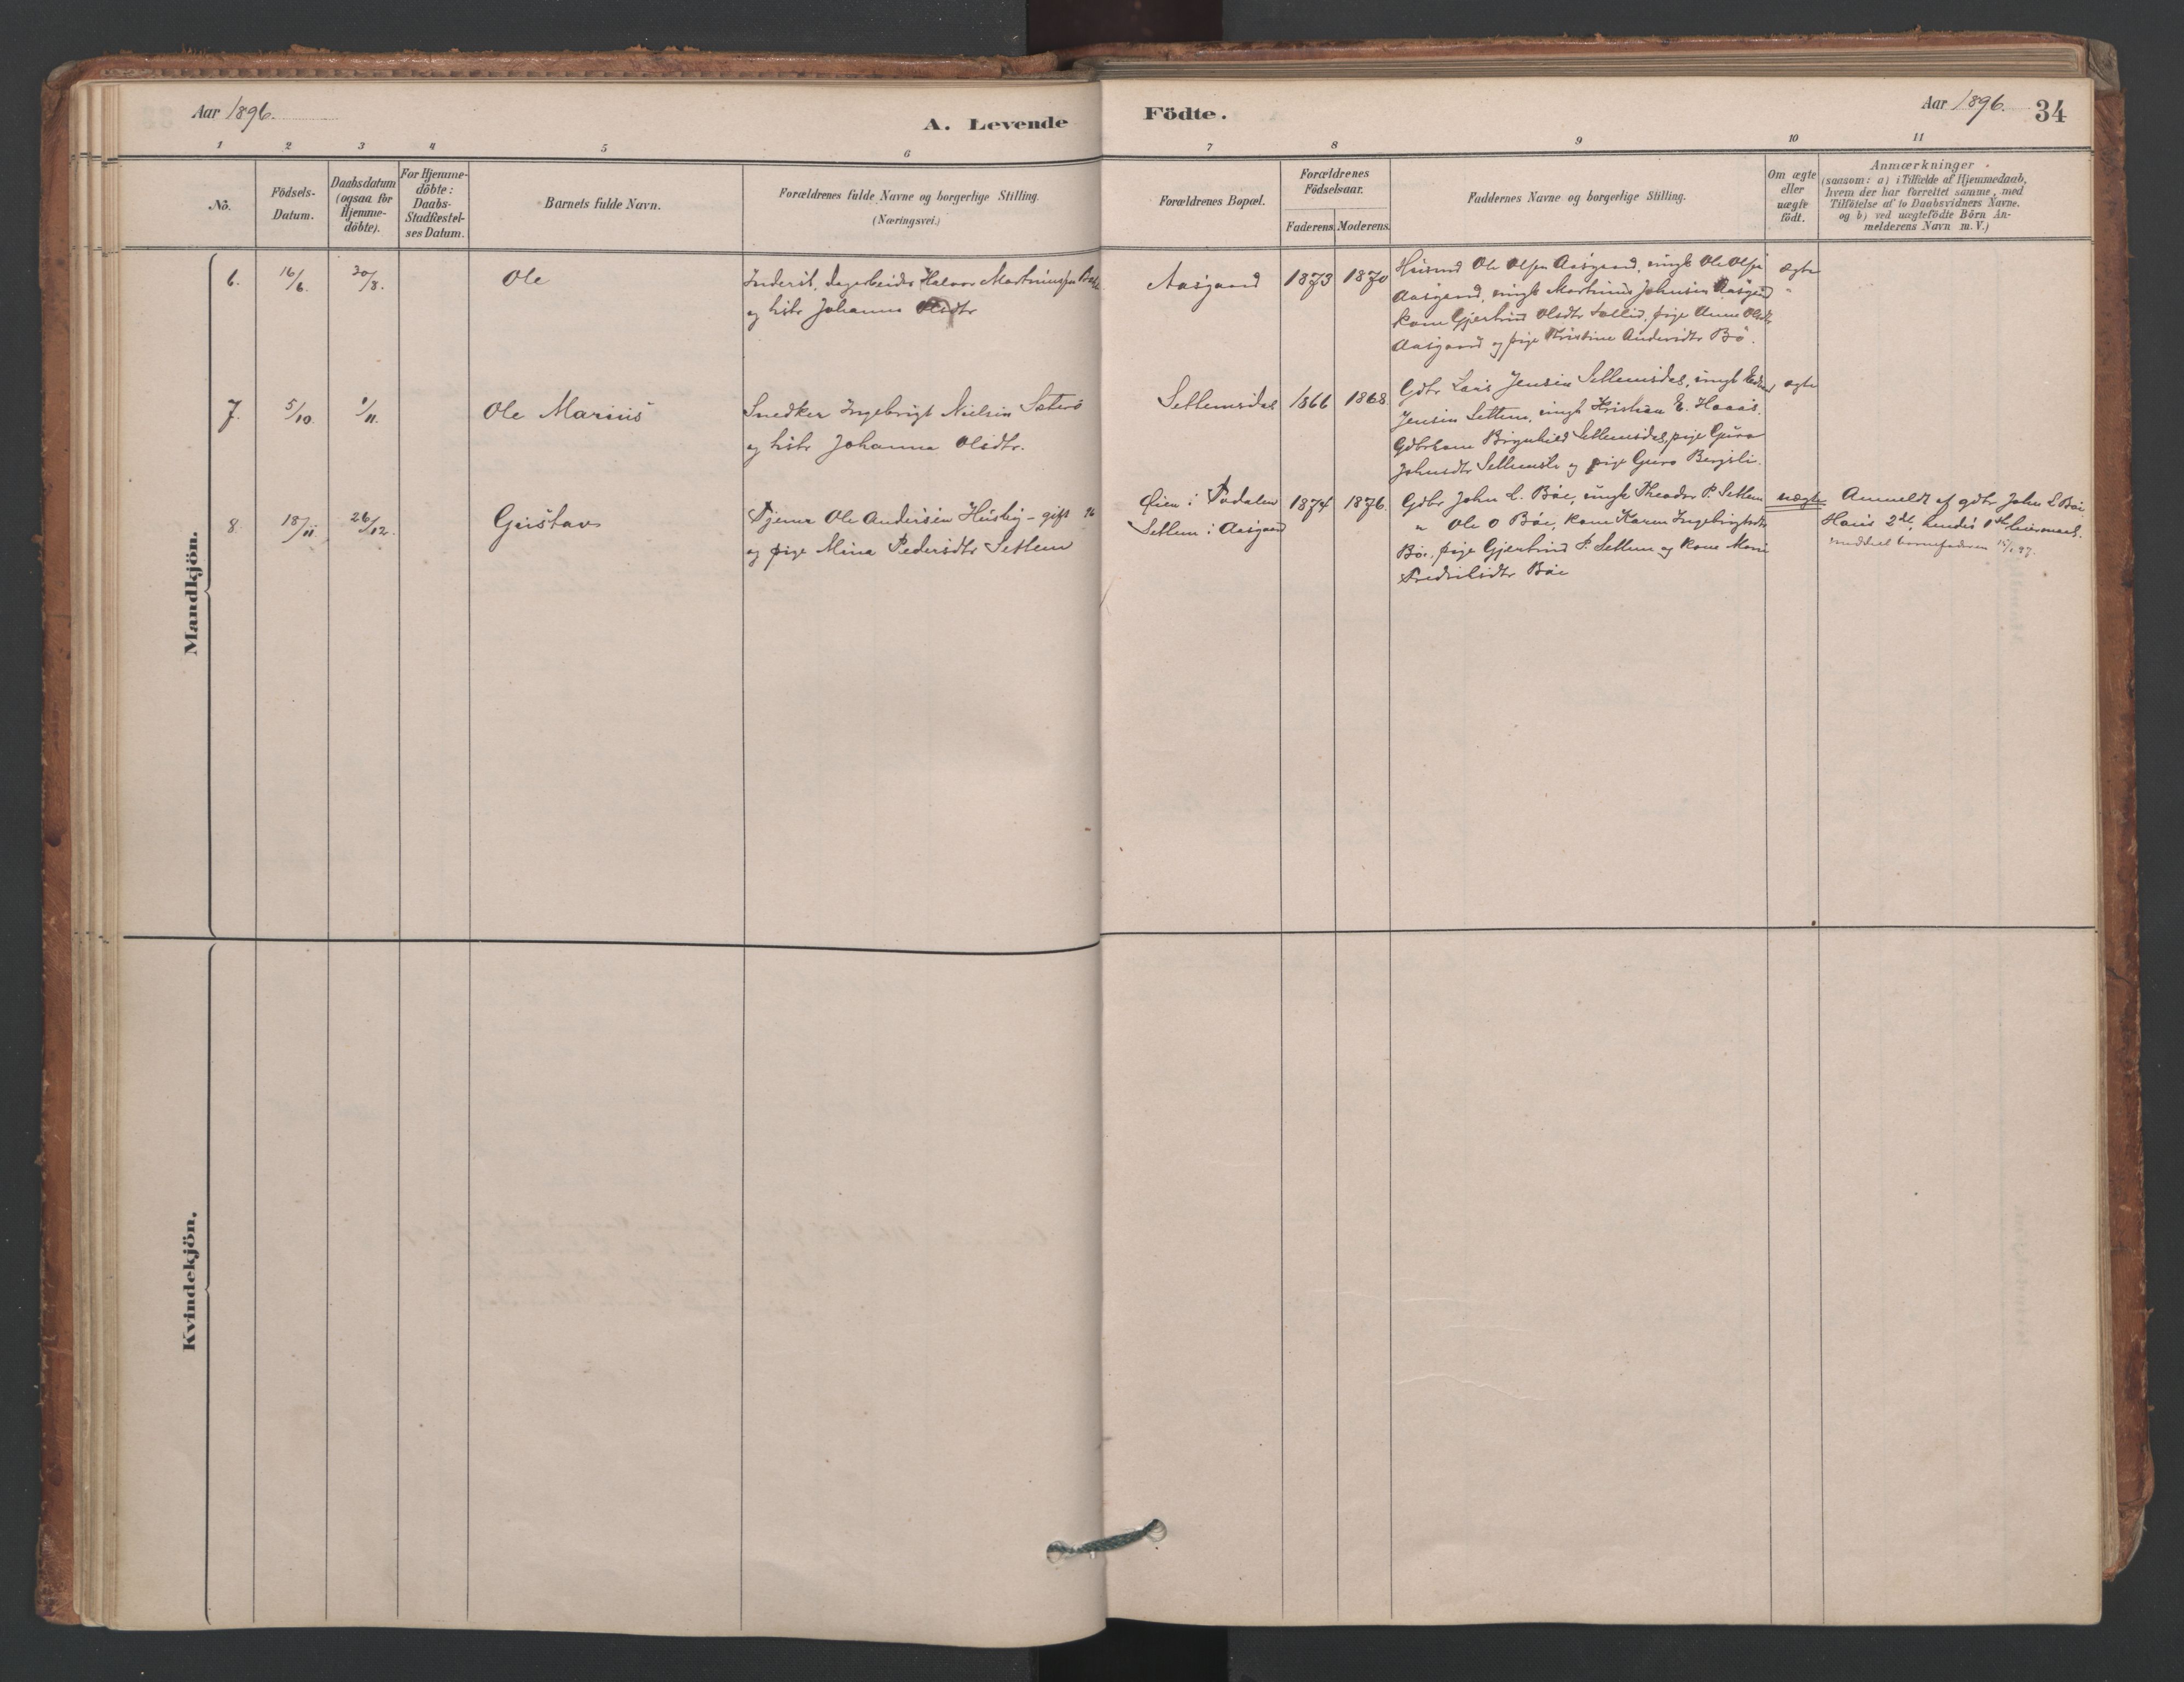 Aar 1896.
A. Levende
Födte.
Aar 1896.
34
1 2 3 4 5 6 7 8 9 10 11
No.
Födsels-
Datum.
Daabsdatum
(ogsaa for
Hjemme-
döbte).
For Hjemme-
döbte:
Daabs-
Stadfæstel-
ses Datum.
Barnets fulde Navn.
Forældrenes fulde Navne og borgerlige Stilling.
(Næringsvei.)
Forældrenes Bopæl.
Forældrenes
Födselsaar.
Faderens. Moderens.
Faddernes Navne og borgerlige Stilling.
Om ægte
eller
uægte
födt.
Anmærkninger.
(saasom: a) i Tilfælde af Hjemmedaab,
hvem der har forrettet samme, med
Tilföielse af to Daabsvidners Navne.
og b) ved uægtefödte Börn An-
melderens Navn m. V.)
Mandkjön.
6. 16/6. 30/8. Ole
Inderst, dagarbeider Halvor Martinussen
og hstr Johanna Olsdtr
Aasgaard 1873 1870
Husmd Ole Olsen Aasgaard, ungk Ole Olsen
Aasgaard, ungk Martinus Johnsen Aasgaard
kone Gjertrud Olsdtr Sollid, pige Anne Olsdtr
Aasgaard og pige Kristine Andersdtr Bö.
ægte
"
7. 5/10. 1/11. Ole Marius
Snedker Ingebrigt Nielsen Säterö
og hstr Johanna Olsdtr.
Settemsdal 1866 1868
Gdbr Lars Jensen Settemsdal, ungk
Jensen Settem, ungk Kristian E. Haaas.
Gdbrkone Brynhild Settemsdal, pige Guro
Johnsdtr Settemsl. og pige Guro Bergsli.
ægte
8. 18/11 26/12. Gustav
Tjener Ole Anderssen Husby - gift 96
og pige Mina Pedersdtr Settem
Øien i Todalen
Settem i Aasgaard
1874 1876.
Gdbr John L. Böe, ungk Theodor P. Settem
" Ole O Böe, kone Karen Ingebrigtsdtr
Böe, pige Gjertrud P. Settem og kone Marie
Fredriksdtr Böe
uægte
Anmeldt af gdbr John L Böe
Hans 2det, hendes 1ste leiermaal.
meddelt barnefaderen 15/1 97.
Kvindekjön.